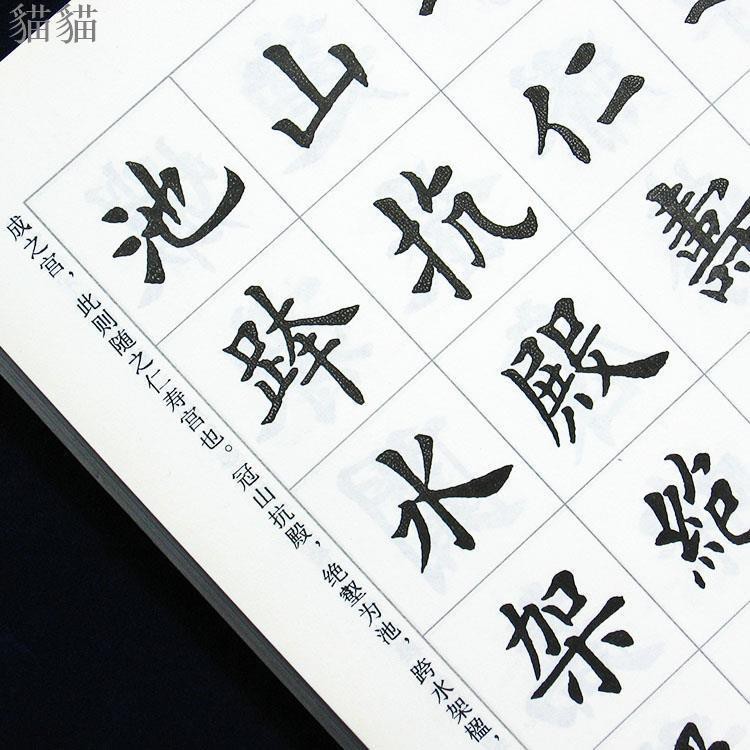 貓貓
仁壽
山抗殿絕
池跨水架
成之宫，此则随之仁寿宫也。冠山抗殿，绝壑为池，跨水架楹，